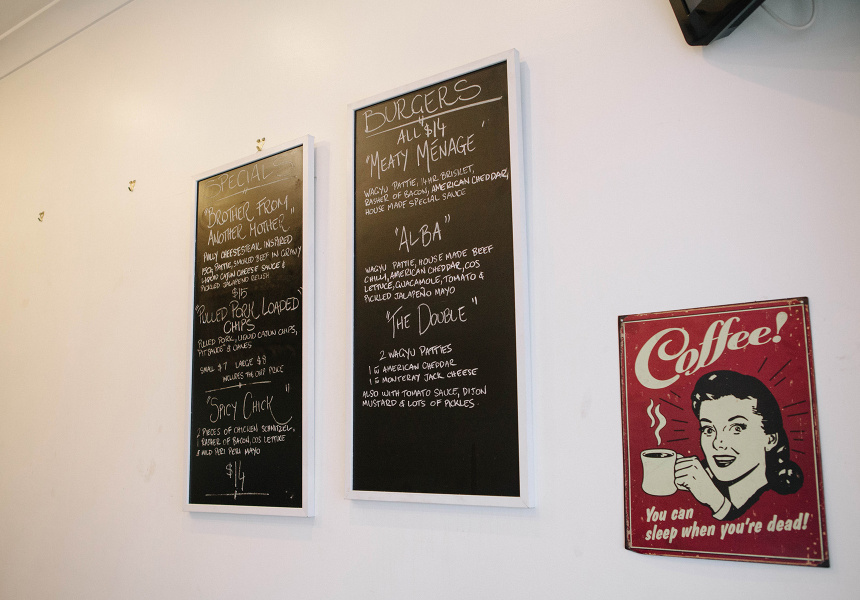 SPECIAL
"BROTHER FROM
ANOTHER MOTHER"
PHILLY CHEESESTEAK INSPIRED
PATTIE, SMOKED BEEF IN GRAVY
LIQUID CAJUN CHEESE SAUCE &
PICKLED JALAPENO RELISH
$15
"PULLED PORK LOADED"
CHIPS
PULLED PORK, LIQUID CAJUN CHIPS,
"PIT SAUCE" &
SMALL $7 LARGE $8
INCLUDES THE CHIP PRICE
"SPICY CHICK"
2 PIECES OF CHICKEN SCHNITZEL,
RASHER OF BACON, COS LETTUCE
& MILD PERI PERI MAYO
$14
BURGERS
ALL $14
"MEATY MÉNAGE"
WAGYU PATTIE, 14HR BRISKET,
RASHER OF BACON, AMERICAN CHEDDAR,
HOUSE MADE SPECIAL SAUCE
"ALBA"
WAGYU PATTIE, HOUSE MADE BEEF
CHILLI, AMERICAN CHEDDAR, COS
LETTUCE, GUACAMOLE, TOMATO &
PICKLED JALAPEÑO MAYO
"THE DOUBLE"
2 WAGYU PATTIES
AMERICAN CHEDDAR
MONTERAY JACK CHEESE
ALSO WITH TOMATO SAUCE, DIJON
MUSTARD & LOTS OF PICKLES
Coffee!
You can
sleep when you're dead!